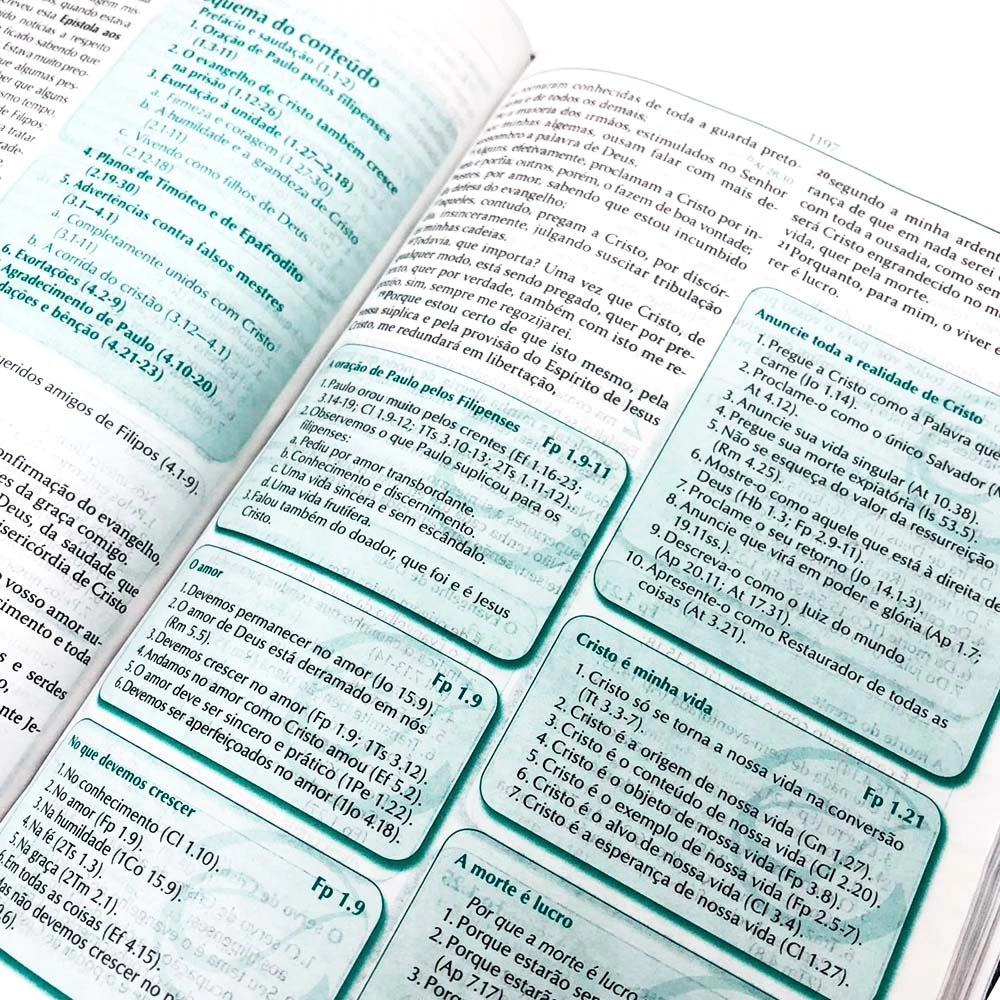 quando estava
creveu esta Epístola aos
ndo notícias a respeito
ficado sabendo que
Estava muito preo-
ue algumas pes-
ber que alguns
smo tempo,
de Filipos;
tratar
quema do conteúdo
Prefácio e saudação (1.1-2)
1. Oração de Paulo pel. filipenses
(1.3-11)
2. O evangelho de Cristo também cresce
na prisão (1.12-26)
3. Exortação à unidade (1.27—2.18)
a. Firmeza e coragem (1.27-30)
b. A humildade e a grandeza de Cristo
(2.1-11)
c. Vivendo como filhos de Deus
(2.12.18)
4. Planos de Timóteo e de Epafrodito
(2.19-30)
5. Advertências contra falsos mestres
(3.1—4.1)
a. Completamente unidos com Cristo
(3.1-11)
b. A corrida do cristão (3.12—4.1)
6. Exortações (4.2-9)
Agradecimento de Paulo (4.10-20)
dações e bênção (4.21-23)
ueridos amigos de Filipos (4.1-9).
onfirmação do evangelho,
es da graça comigo.
Deus, da saudade que
isericórdia de Cristo
o vosso amor au-
cimento e toda
s e serdes
nte Je-
1197
tornaram conhecidas de toda a guarda preto-
e de todos os demais;
a maioria dos irmãos, estimulados no Senhor
minhas algemas, ousam falar com mais de-
assombro a palavra de Deus.
Alguns, efetivamente, proclamam a Cristo por in-
e porfia; outros, porém, o fazem de boa vontade;
estes, por amor, sabendo que estou incumbido
defesa do evangelho;
aqueles, contudo, pregam a Cristo, por discór-
insinceramente, julgando suscitar tribulação
minhas cadeias.
Todavia, que importa? Uma vez que Cristo, de
qualquer modo, está sendo pregado, quer por pre-
texto, quer por verdade, também com isto me re-
sim, sempre me regozijarei.
Porque estou certo de que isto mesmo, pela
vossa súplica e pela provisão do Espírito de Jesus
Cristo, me redundará em libertação,
A oração de Paulo pelos Filipenses Fp 1.9-11
1. Paulo orou muito pelos crentes (Ef 1.16-23;
3.14-19; Cl 1.9-12; 1Ts 3.10-13; 2Ts 1.11-12).
2. Observemos o que Paulo suplicou para os
filipenses:
a. Pediu por amor transbordante.
b. Conhecimento e discernimento.
c. Uma vida sincera e sem escândalo.
d. Uma vida frutífera.
3. Falou também do doador, que foi e é Jesus
Cristo.
O amor Fp 1.9
1. Devemos permanecer no amor (Jo 15.9).
2. O amor de Deus está derramado em nós
(Rm 5.5).
3. Devemos crescer no amor (Fp 1.9; 1Ts 3.12).
4. Andamos no amor como Cristo amou (Ef 5.2).
5. O amor deve ser sincero e prático (1Pe 1.22).
6. Devemos ser aperfeiçoados no amor (1Jo 4.18).
No que devemos crescer Fp 1.9
1. No conhecimento (Cl 1.10).
2. No amor (Fp 1.9).
3. Na humildade (1Co 15.9).
4. Na fé (2Ts 1.3).
5. Na graça (2Tm 2.1).
6. Em todas as coisas (Ef 4.15).
Mas não devemos crescer no
20 segundo a minha ardent
rança de que em nada serei
com toda a ousadia, como sem
será Cristo engrandecido no m
vida, quer pela morte.
21 Porquanto, para mim, o viver é
rer é lucro.
Anuncie toda a realidade de Cristo
1. Pregue a Cristo como a Palavra que
Carne (Jo 1.14).
2. Proclame-o como o único Salvador (
At 4.12).
3. Anuncie sua vida singular (At 10.38).
4. Pregue sua morte expiatória (Is 53.5).
5. Não se esqueça do valor da ressurreição
(Rm 4.25).
6. Mostre-o como aquele que está à direita de
Deus (Hb 1.3; Fp 2.9-11).
7. Proclame o seu retorno (Jo 14.1-3).
8. Anuncie que virá em poder e glória (Ap 1.7;
19.11ss.).
9. Descreva-o como o Juiz do mundo
(Ap 20.11; At 17.31).
10. Apresente-o como Restaurador de todas as
coisas (At 3.21).
Cristo é minha vida Fp 1.21
1. Cristo só se torna a nossa vida na conversão
(Tt 3.3-7).
2. Cristo é a origem de nossa vida (Gn 1.27).
3. Cristo é o conteúdo de nossa vida (Gl 2.20).
4. Cristo é o objeto de nossa vida (Fp 3.8).
5. Cristo é o exemplo de nossa vida (Fp 2.5-7).
6. Cristo é o alvo de nossa vida (Cl 3.4).
7. Cristo é a esperança de nossa vida (Cl 1.27).
A morte é lucro
Por que a morte é lucro
1. Porque estarão se
2. Porque estarão
(Ap 7.17).
3. Porq